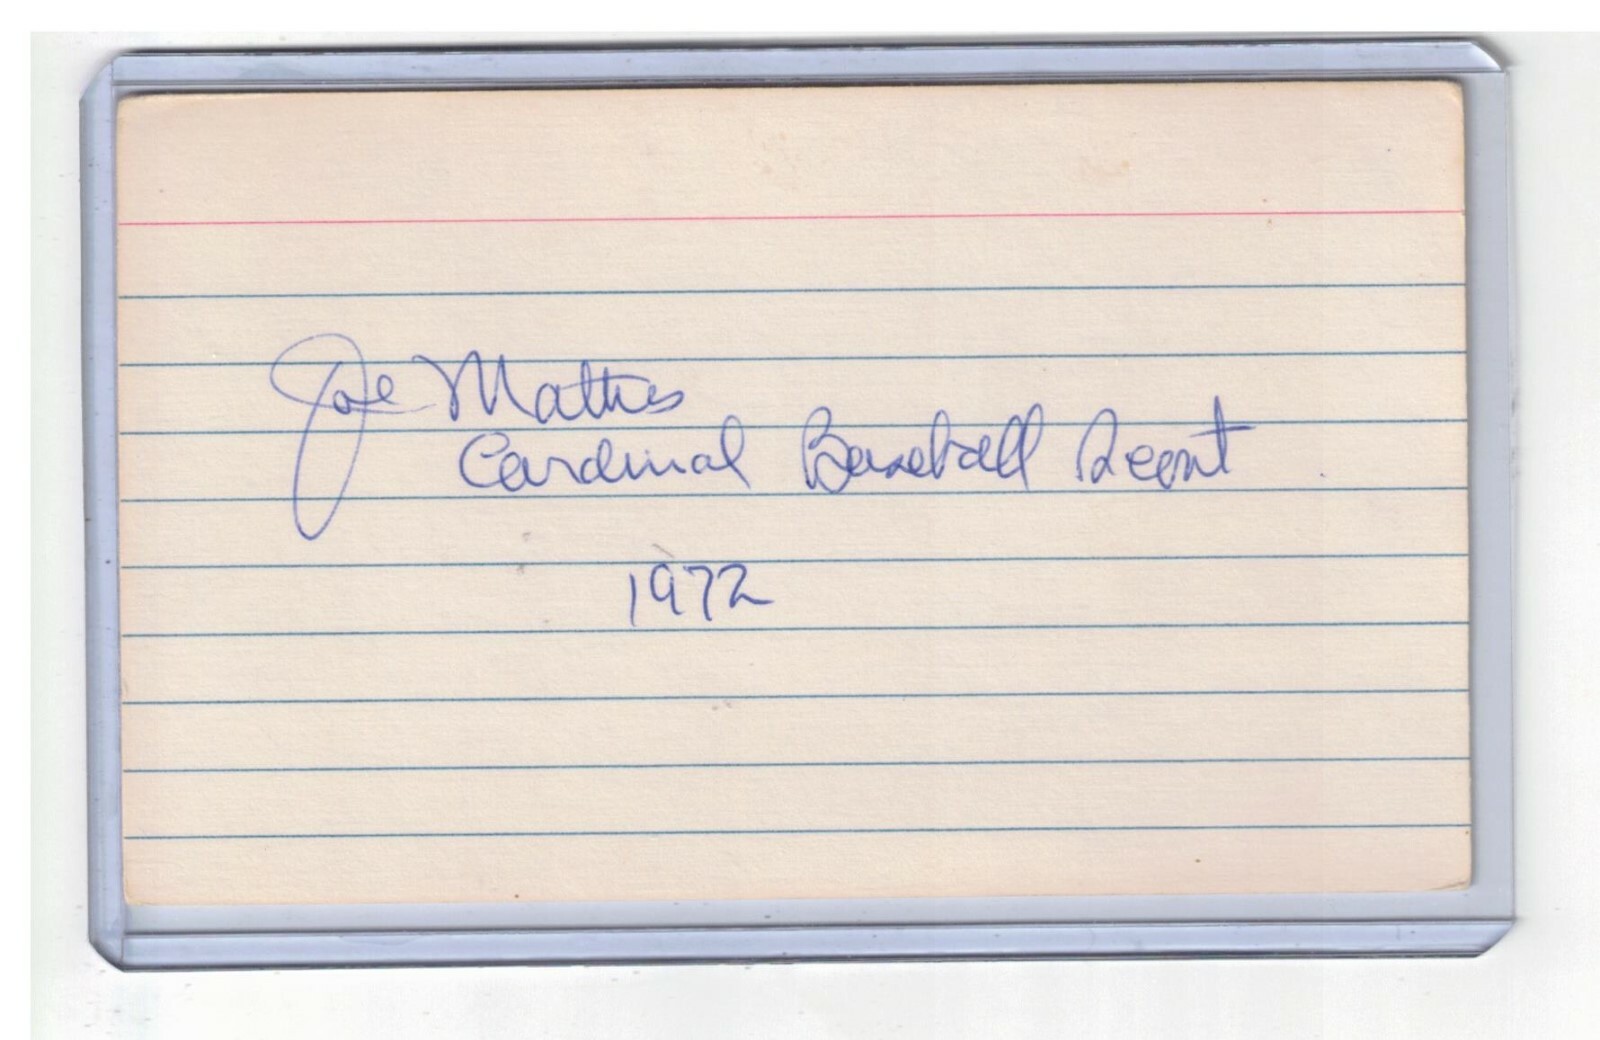 Joe Mathis
Cardinal Baseball Scout
1972